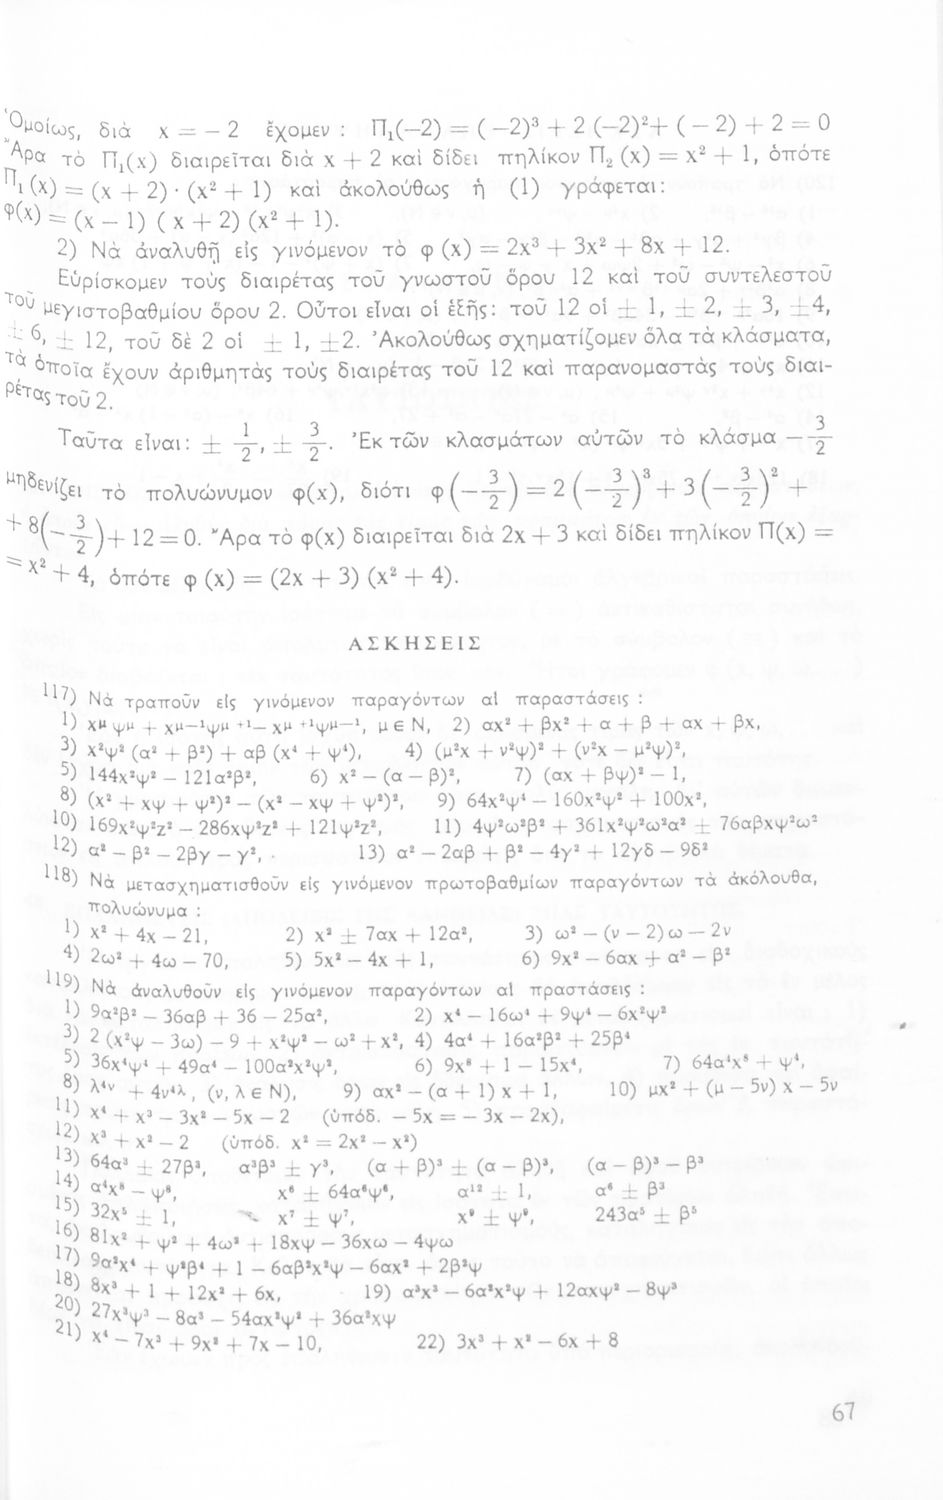 Ὁμοίως, διὰ x = — 2 ἔχομεν : Π₁(—2) = (—2)³ + 2 (—2)²+ ( — 2) + 2 = 0
Ἄρα τὸ Π₁(x) διαιρεῖται διὰ x + 2 καὶ δίδει πηλίκον Π₂ (x) = x² + 1, ὁπότε
Π₁ (x) = (x + 2) · (x² + 1) καὶ ἀκολούθως ἡ (1) γράφεται:
φ(x) = (x — 1) ( x + 2) (x² + 1).
2) Νὰ ἀναλυθῇ εἰς γινόμενον τὸ φ (x) = 2x³ + 3x² + 8x + 12.
Εὑρίσκομεν τοὺς διαιρέτας τοῦ γνωστοῦ ὅρου 12 καὶ τοῦ συντελεστοῦ
τοῦ μεγιστοβαθμίου ὅρου 2. Οὗτοι εἶναι οἱ ἑξῆς: τοῦ 12 οἱ ± 1, ± 2, ± 3, ±4,
± 6, ± 12, τοῦ δὲ 2 οἱ ± 1, ±2. Ἀκολούθως σχηματίζομεν ὅλα τὰ κλάσματα,
τὰ ὁποῖα ἔχουν ἀριθμητὰς τοὺς διαιρέτας τοῦ 12 καὶ παρανομαστὰς τοὺς διαι-
ρέτας τοῦ 2.
Ταῦτα εἶναι: ± 1/2, ± 3/2. Ἐκ τῶν κλασμάτων αὐτῶν τὸ κλάσμα —3/2
μηδενίζει τὸ πολυώνυμον φ(x), διότι φ(—3/2) = 2 (—3/2)³ + 3 (—3/2)² +
+ 8(—3/2)+ 12 = 0. Ἄρα τὸ φ(x) διαιρεῖται διὰ 2x + 3 καὶ δίδει πηλίκον Π(x) =
= x² + 4, ὁπότε φ (x) = (2x + 3) (x² + 4).
ΑΣΚΗΣΕΙΣ
117) Νὰ τραποῦν εἰς γινόμενον παραγόντων αἱ παραστάσεις :
1) xᵘψᵘ + xᵘ⁻¹ψᵘ⁺¹— xᵘ⁺¹ψᵘ⁻¹, μ ∈ N, 2) αx² + βx² + α + β + αx + βx,
3) x²ψ² (α² + β²) + αβ (x⁴ + ψ⁴), 4) (μ²x + ν²ψ)² + (ν²x — μ²ψ)²,
5) 144x²ψ² — 121α²β², 6) x² — (α — β)², 7) (αx + βψ)² — 1,
8) (x² + xψ + ψ²)² — (x² — xψ + ψ²)², 9) 64x²ψ⁴ — 160x²ψ² + 100x²,
10) 169x²ψ²z² — 286xψ²z² + 121ψ²z², 11) 4ψ²ω²β² + 361x²ψ²ω²α² ± 76αβxψ²ω²
12) α² — β² — 2βγ — γ², 13) α² — 2αβ + β² — 4γ² + 12γδ — 9δ²
118) Νὰ μετασχηματισθοῦν εἰς γινόμενον πρωτοβαθμίων παραγόντων τὰ ἀκόλουθα,
πολυώνυμα :
1) x² + 4x — 21, 2) x² ± 7αx + 12α², 3) ω² — (ν — 2) ω — 2ν
4) 2ω² + 4ω — 70, 5) 5x² — 4x + 1, 6) 9x² — 6αx + α² — β²
119) Νὰ ἀναλυθοῦν εἰς γινόμενον παραγόντων αἱ πραστάσεις :
1) 9α²β² — 36αβ + 36 — 25α², 2) x⁴ — 16ω⁴ + 9ψ⁴ — 6x²ψ²
3) 2 (x²ψ — 3ω) — 9 + x²ψ² — ω² + x², 4) 4α⁴ + 16α²β² + 25β⁴
5) 36x⁴ψ⁴ + 49α⁴ — 100α²x²ψ², 6) 9x⁸ + 1 — 15x⁴, 7) 64α⁴x⁸ + ψ⁴,
8) λ⁴ᵛ + 4ν⁴λ, (ν, λ ∈ N), 9) αx² — (α + 1) x + 1, 10) μx² + (μ — 5ν) x — 5ν
11) x⁴ + x³ — 3x² — 5x — 2 (ὑπόδ. — 5x = — 3x — 2x),
12) x³ + x² — 2 (ὑπόδ. x² = 2x² — x²)
13) 64α³ ± 27β³, α³β³ ± γ³, (α + β)³ ± (α — β)³, (α — β)³ — β³
14) α⁴x⁸ — ψ⁸, x⁶ ± 64α⁶ψ⁶, α¹² ± 1, α⁶ ± β³
15) 32x⁵ ± 1, x⁷ ± ψ⁷, x⁹ ± ψ⁹, 243α⁵ ± β⁵
16) 81x² + ψ² + 4ω² + 18xψ — 36xω — 4ψω
17) 9α²x⁴ + ψ²β⁴ + 1 — 6αβ²x²ψ — 6αx² + 2β²ψ
18) 8x³ + 1 + 12x² + 6x, 19) α³x³ — 6α²x²ψ + 12αxψ² — 8ψ³
20) 27x³ψ³ — 8α³ — 54αx²ψ² + 36α²xψ
21) x⁴ — 7x³ + 9x² + 7x — 10, 22) 3x³ + x² — 6x + 8
67